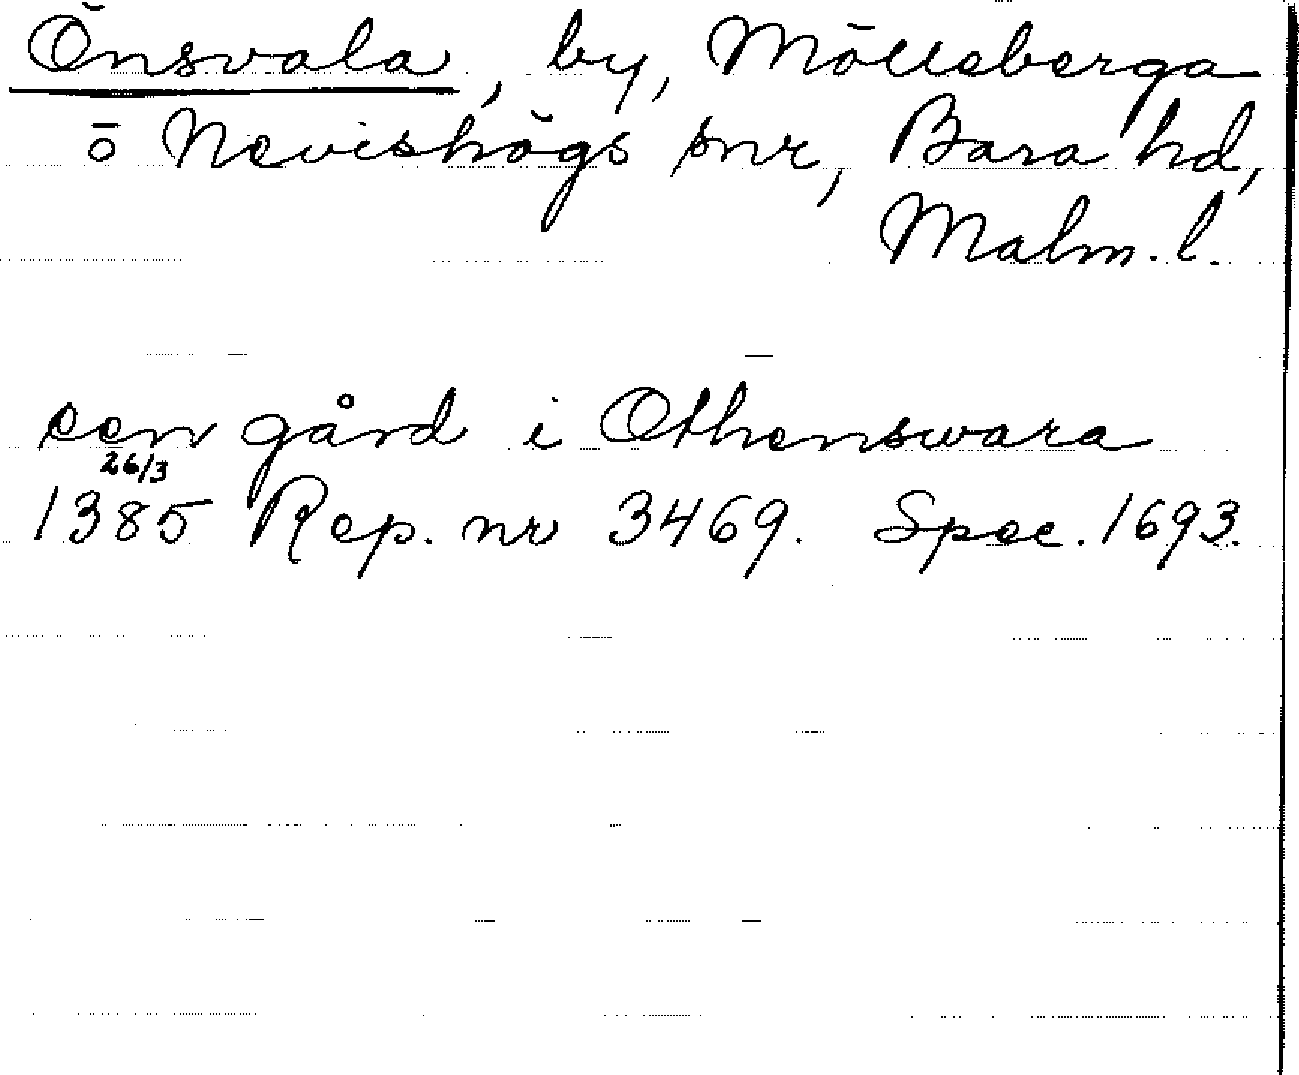 Önsvala, by, Mölleberga
ō Nevishögs snr, Bara hd,
Malm. l.
een gård i Othenswara
26/3
1385 Rep. nr 3469. Spec. 1693.